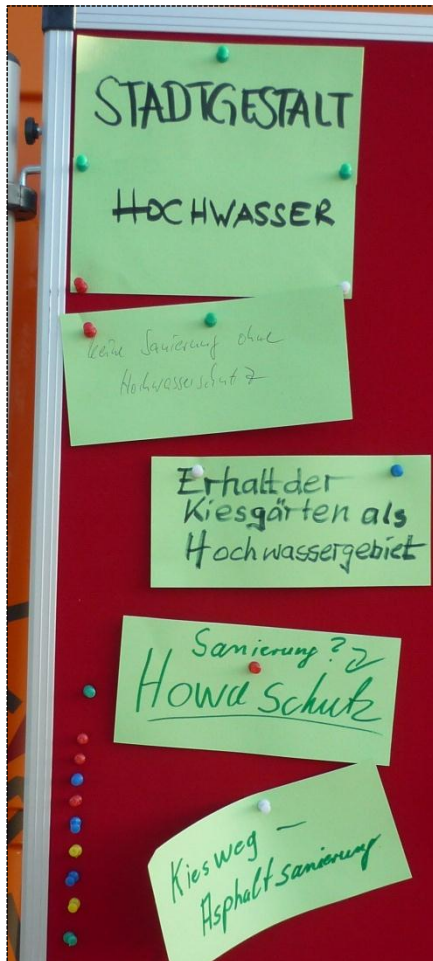 STADTGESTALT
HOCHWASSER
keine Sanierung ohne
Hochwasserschutz
Erhalt der
Kiesgärten als
Hochwassergebiet
Sanierung?
Howa Schutz
Kiesweg —
Asphaltsanierung